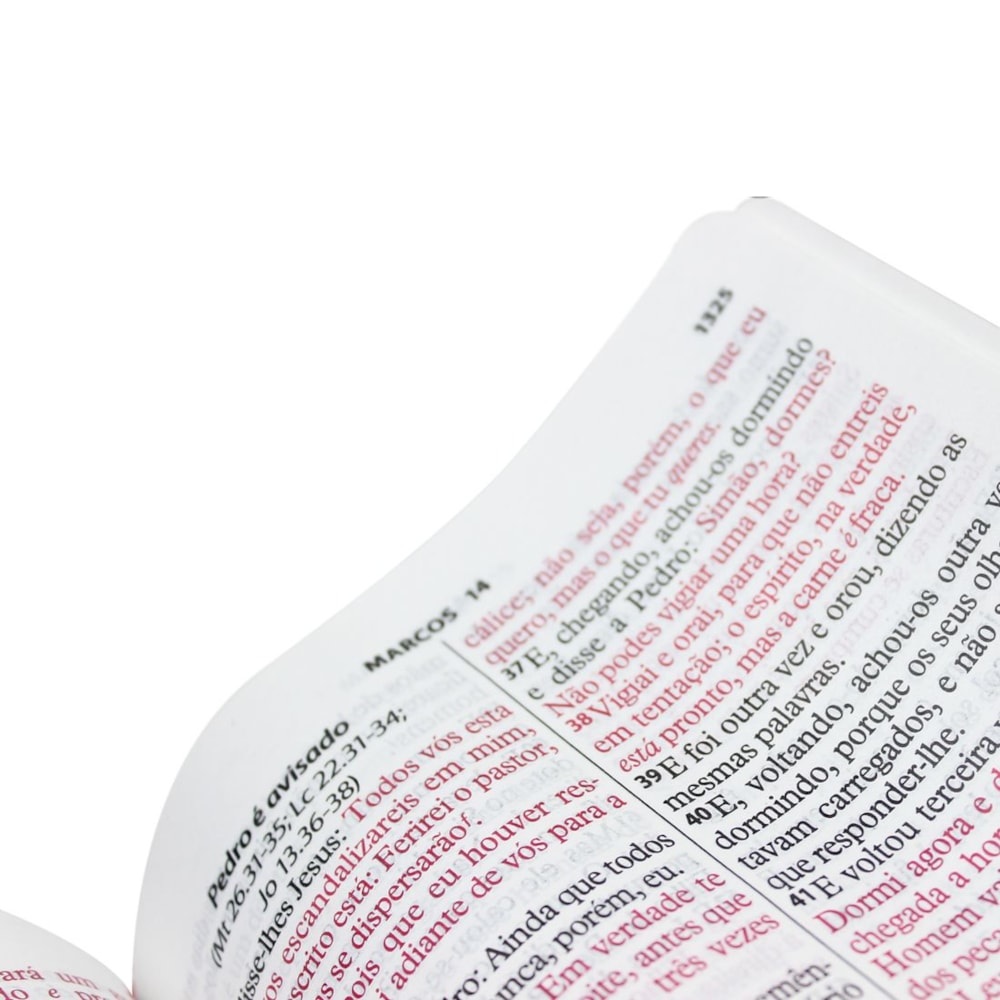 MARCOS 14
1325
Pedro é avisado
(Mt 26.31-35; Lc 22.31-34;
Jo 13.36-38)
disse-lhes Jesus: Todos vós esta
escandalizareis em mim,
escrito está: Ferirei o pastor,
se dispersarão.
que eu houver res-
adiante de vós para a
Ainda que todos
porém, eu.
Em verdade te
antes que
três vezes
cálice; não seja, porém, o que eu
quero, mas o que tu queres.
37 E, chegando, achou-os dormindo
e disse a Pedro: Simão, dormes?
Não podes vigiar uma hora?
38 Vigiai e orai, para que não entreis
em tentação; o espírito, na verdade,
está pronto, mas a carne é fraca.
39 E foi outra vez e orou, dizendo as
mesmas palavras.
40 E, voltando, achou-os outra
dormindo, porque os seus
tavam carregados, e não
que responder-lhe.
41 E voltou terceira
Dormi agora e
chegada a
Homem
dos